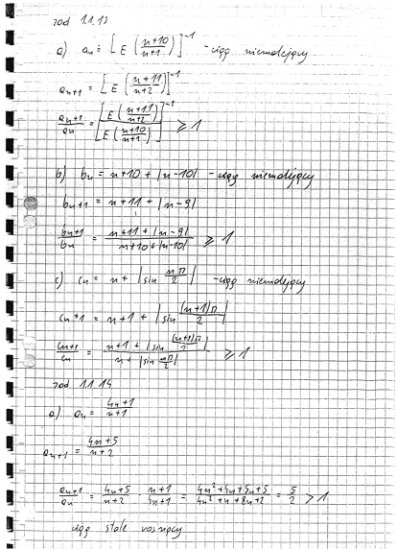 zad 11.13
a) an = [E(\frac{n+10}{n+1})]^{-1} - ciąg niemalejący
an+1 = [E(\frac{n+11}{n+2})]^{-1}
\frac{an+1}{an} = \frac{[E(\frac{n+11}{n+2})]^{-1}}{[E(\frac{n+10}{n+1})]} ≥ 1
b) bn = n+10 + |n-10| - ciąg niemalejący
bn+1 = n+11 + |n-9|
\frac{bn+1}{bn} = \frac{n+11+|n-9|}{n+10+|n-10|} ≥ 1
c) cn = n + |sin \frac{nπ}{2}| - ciąg niemalejący
cn+1 = n+1 + |sin \frac{(n+1)π}{2}|
\frac{cn+1}{cn} = \frac{n+1 + |sin \frac{(n+1)π}{2}|}{n + |sin \frac{nπ}{2}|} ≥ 1
zad 11.14
a) an = \frac{4n+1}{n+1}
an+1 = \frac{4n+5}{n+2}
\frac{an+1}{an} = \frac{4n+5}{n+2} · \frac{n+1}{4n+1} = \frac{4n²+4n+5n+5}{4n²+n+8n+2} = \frac{5}{2} > 1
ciąg stale rosnący